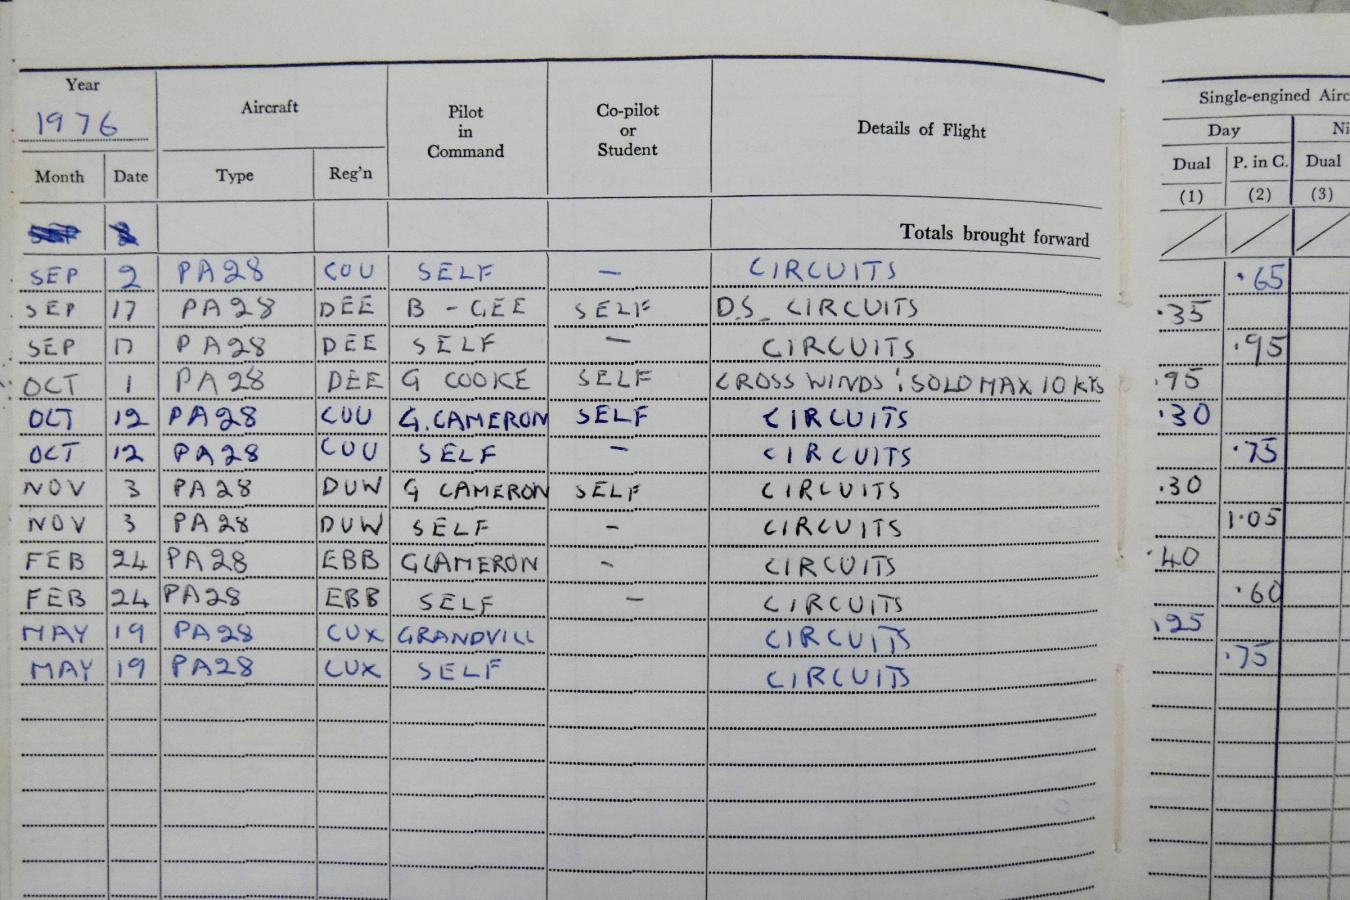 Year
1976
Aircraft
Pilot in Command
Co-pilot or Student
Details of Flight
Single-engined Airc
Day
Ni
Month Date Type Reg'n Dual P. in C. Dual
(1) (2) (3)
Totals brought forward
SEP 2 PA28 COU SELF — CIRCUITS .65
SEP 17 PA28 DEE B - GEE SELF D.S. CIRCUITS .35
SEP 17 PA28 DEE SELF — CIRCUITS .95
OCT 1 PA28 DEE G COOKE SELF CROSS WINDS : SOLO MAX 10 KTS .95
OCT 12 PA28 COU G. CAMERON SELF CIRCUITS .30
OCT 12 PA28 COU SELF — CIRCUITS .75
NOV 3 PA28 DUW G CAMERON SELF CIRCUITS .30
NOV 3 PA28 DUW SELF — CIRCUITS 1.05
FEB 24 PA28 EBB G CAMERON - CIRCUITS .40
FEB 24 PA28 EBB SELF — CIRCUITS .60
MAY 19 PA28 CUX GRANDVILL CIRCUITS .25
MAY 19 PA28 CUX SELF CIRCUITS .75